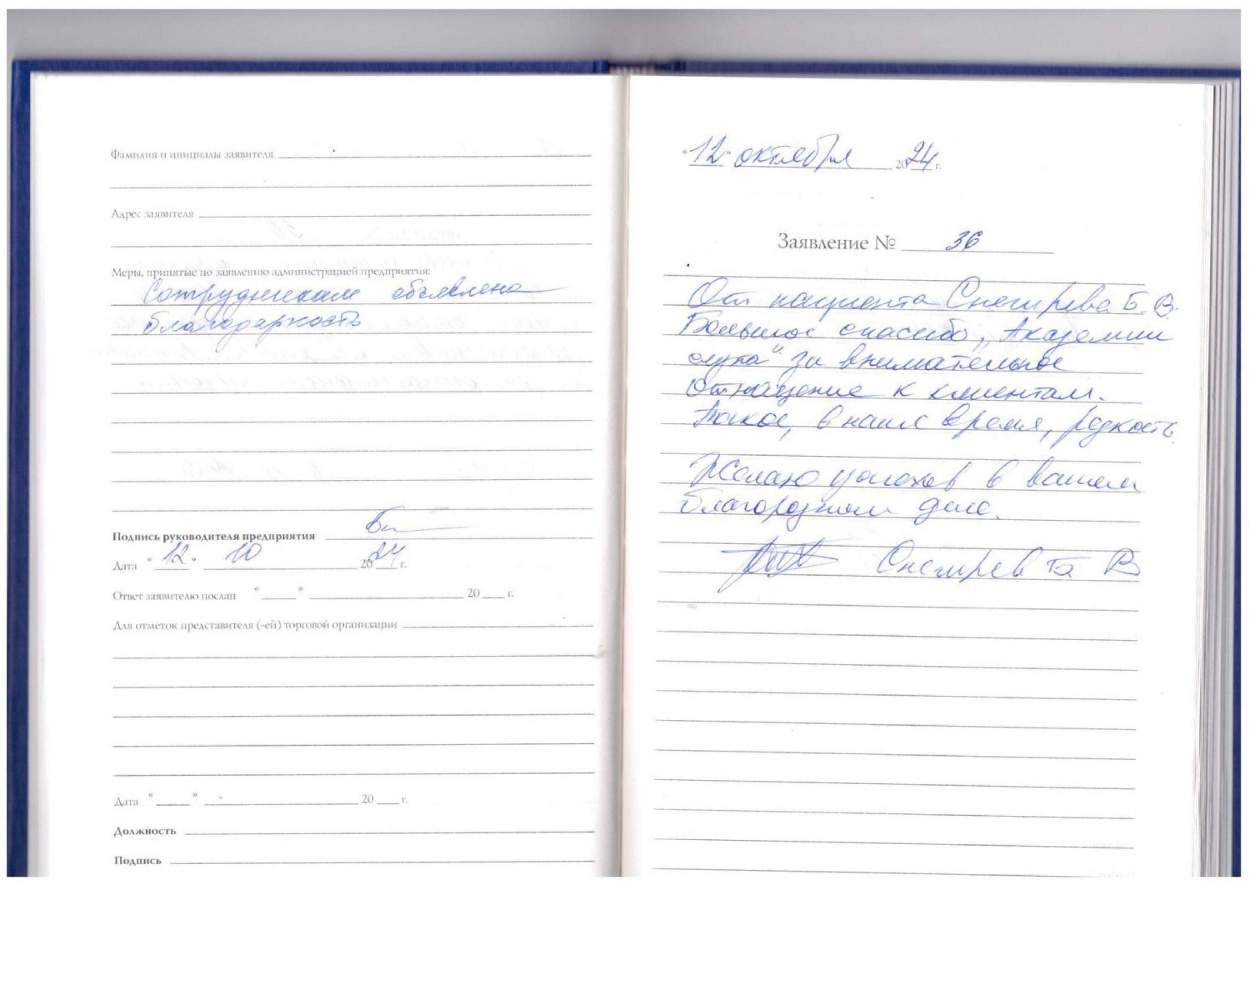 Фамилия и инициалы заявителя
Адрес заявителя
Меры, принятые по заявлению администрацией предприятия:
Сотрудникам объявлена
благодарность
Подпись руководителя предприятия
Дата "12" 10 2024 г.
Ответ заявителю послан " " 20 г.
Для отметок представителя (-ей) торговой организации
Дата " " 20 г.
Должность
Подпись
"12" октября 2024 г.
Заявление № 36
От пациента Снегирева Б. В.
Большое спасибо „Академии
слуха" за внимательное
отношение к клиентам.
Такое, в наше время, редкость.
Желаю успехов в вашем
благородном деле.
Снегирев